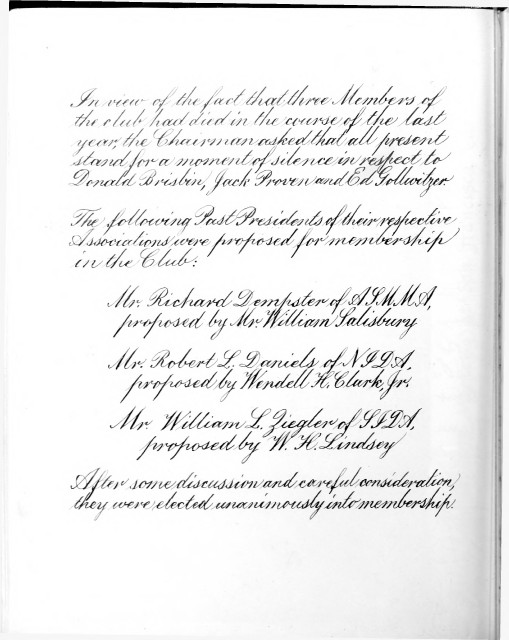 In view of the fact that three Members of
the club had died in the course of the last
year, the Chairman asked that all present
stand for a moment of silence in respect to
Donald Brisbin, Jack Proven and Ed Gollwitzer.
The following Past Presidents of their respective
Associations were proposed for membership
in the Club:
Mr. Richard Dempster of ASMMA,
proposed by Mr. William Salisbury
Mr. Robert L. Daniels of NIDA,
proposed by Wendell H. Clark, Jr.
Mr. William L. Ziegler of SIDA,
proposed by W. H. Lindsey
After some discussion and careful consideration,
they were elected unanimously into membership.